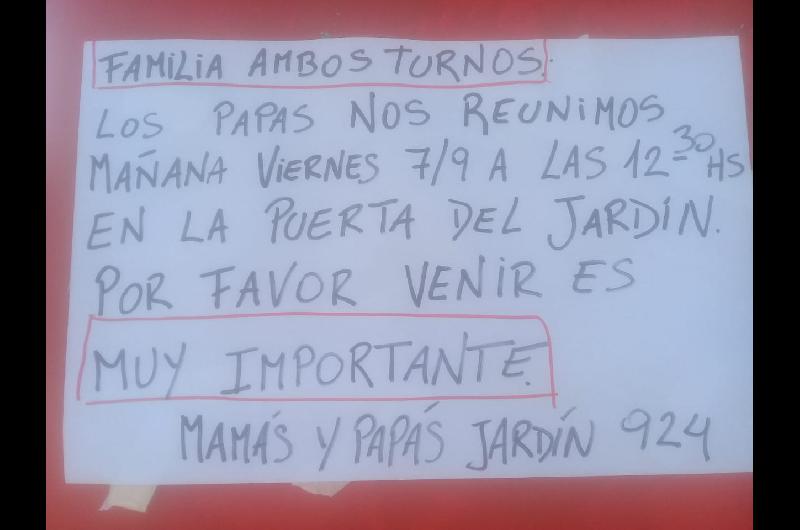 FAMILIA AMBOS TURNOS.
LOS PAPAS NOS REUNIMOS
MAÑANA VIERNES 7/9 A LAS 12-30 HS
EN LA PUERTA DEL JARDÍN.
POR FAVOR VENIR ES
MUY IMPORTANTE.
MAMÁS Y PAPÁS JARDÍN 924